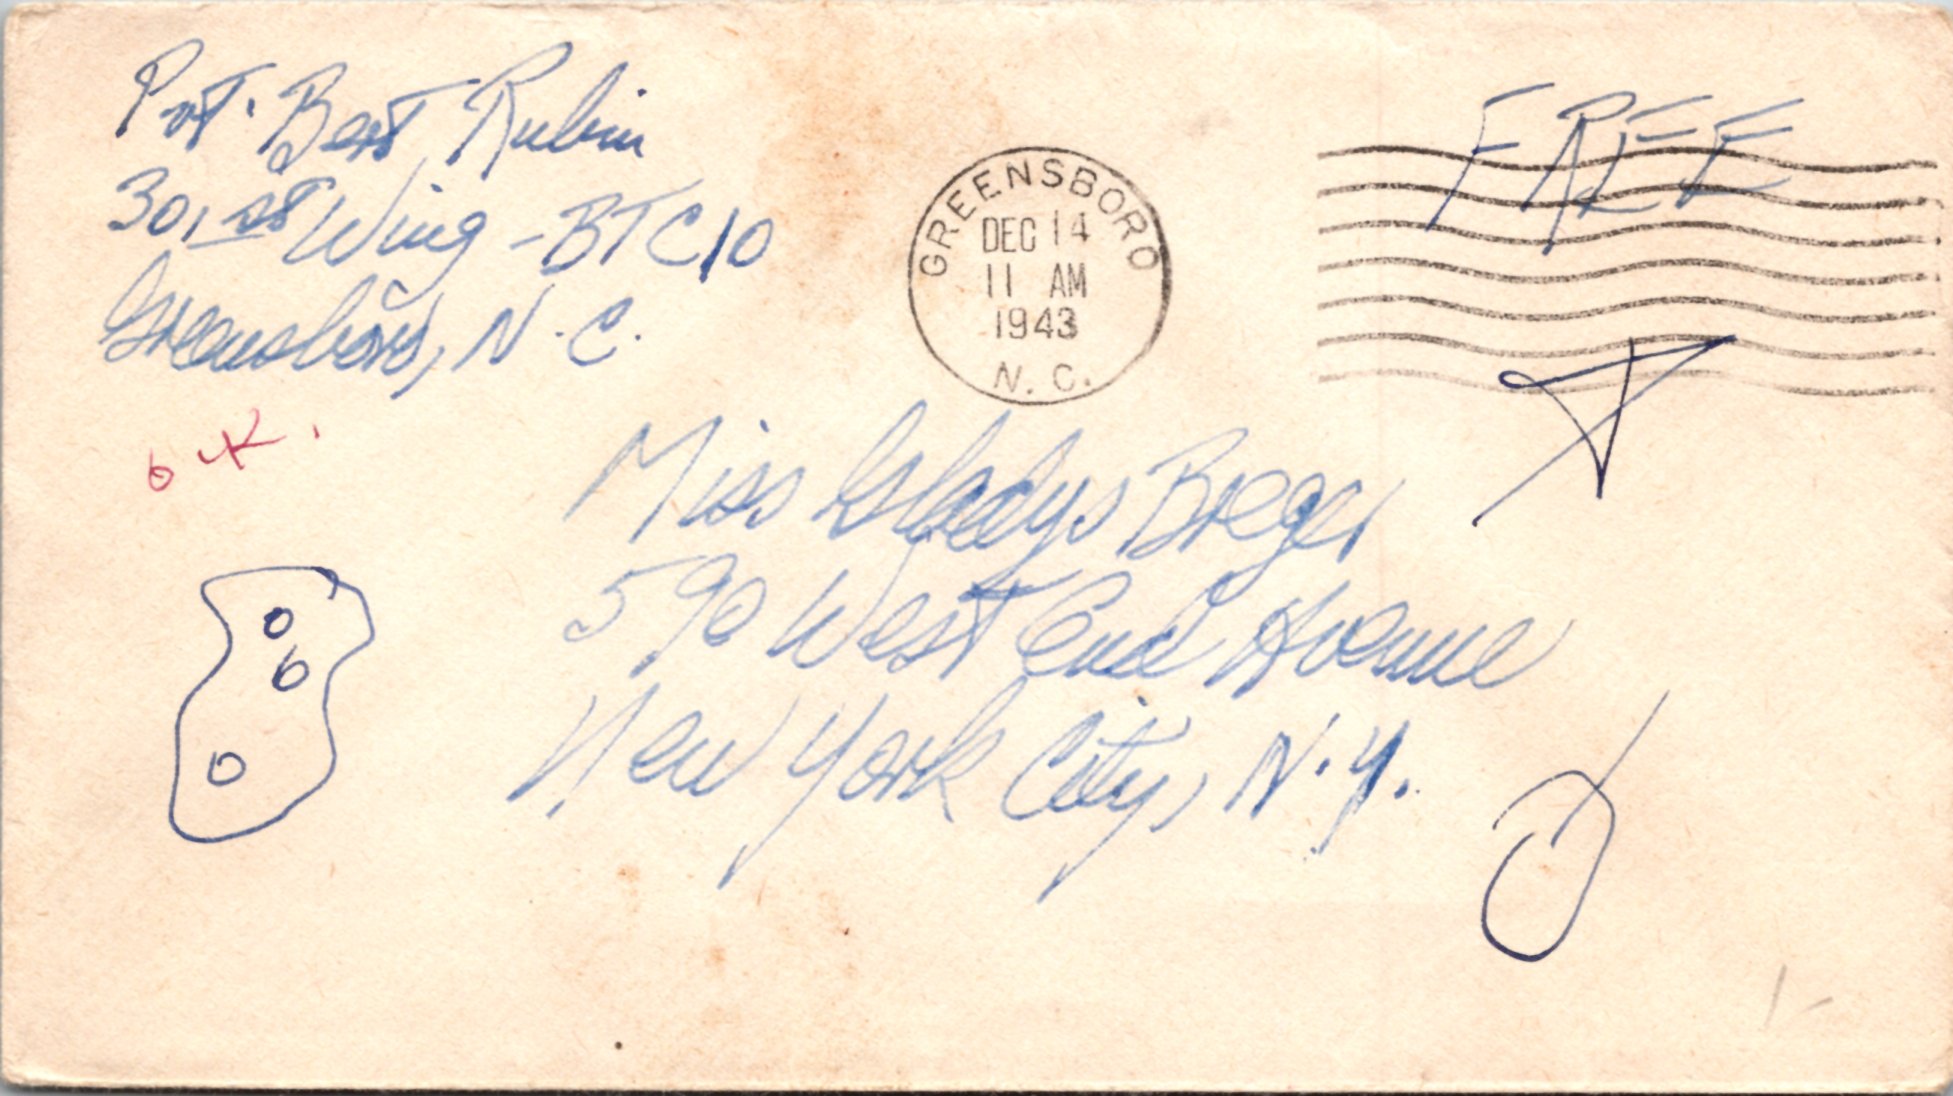 Pvt. Bert Rubin
301st Wing - BTC10
Greensboro, N.C.
o.k.
GREENSBORO
DEC 14
11 AM
1943
N.C.
FREE
Miss Gladys Breger
590 West End Avenue
New York City, N.Y.